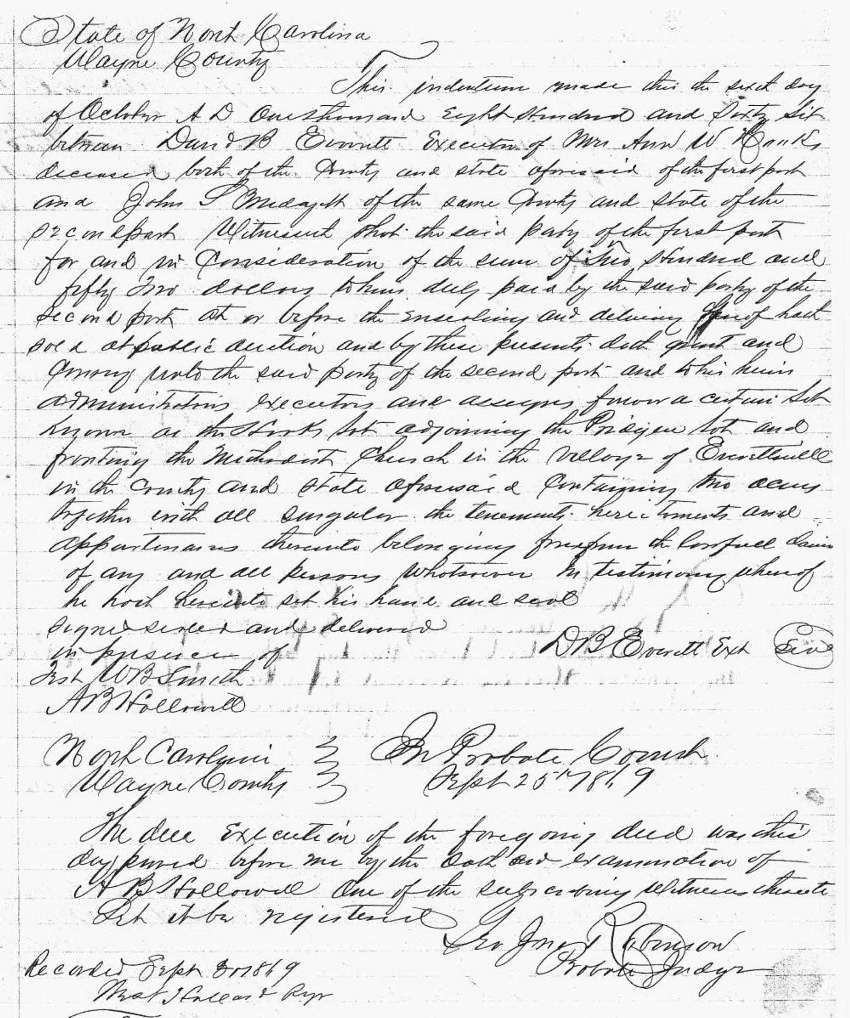 State of North Carolina
Wayne County
This indenture made this the sixth day
of October A D One thousand Eight Hundred and Sixty Six
between David B Everett Executor of Mrs Ann W Hooks
deceased both of the County and state aforesaid of the first part
and John S Midgett of the same County and state of the
second part Witnesseth that the said party of the first part
for and in Consideration of the sum of Two Hundred and
fifty Two dollars to him duly paid by the said party of the
second part at or before the ensealing and delivery hereof hath
sold at public auction and by these presents doth grant and
Convey unto the said party of the second part and to his heirs
administrators executors and assigns forever a certain Lot
known as the Hooks lot adjoining the Pridgen lot and
fronting the Methodist Church in the village of Everettsville
in the County and State aforesaid Containing two acres
together with all singular the tenements hereditaments and
appurtenances thereunto belonging free from the lawfull claim
of any and all persons whatsoever In testimony whereof
he hath hereunto set his hand and seal
signed sealed and delivered
in presence of
D B Everett Ext Seal
Test W B Smith
A B Hollowell
North Carolina } In Probate Court
Wayne County } Sept 25th 1869
The due Execution of the foregoing deed was this
day proved before me by the oath and examination of
A B Hollowell One of the subscribing Witnesses thereto
Let it be registered
Geo Jno Robinson
Probate Judge
Recorded Sept 30 1869